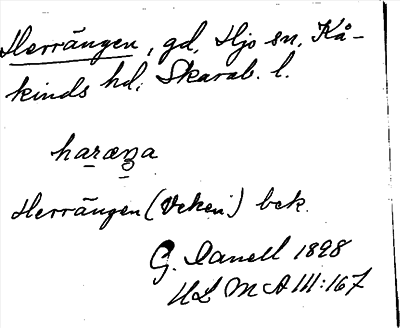 Herrängen, gd, Hjo sn, Kå-
kinds hd, Skarab. l.
haræŋa
Herrängen (Veken) bek.
G. Danell 1898
ULMA III:167